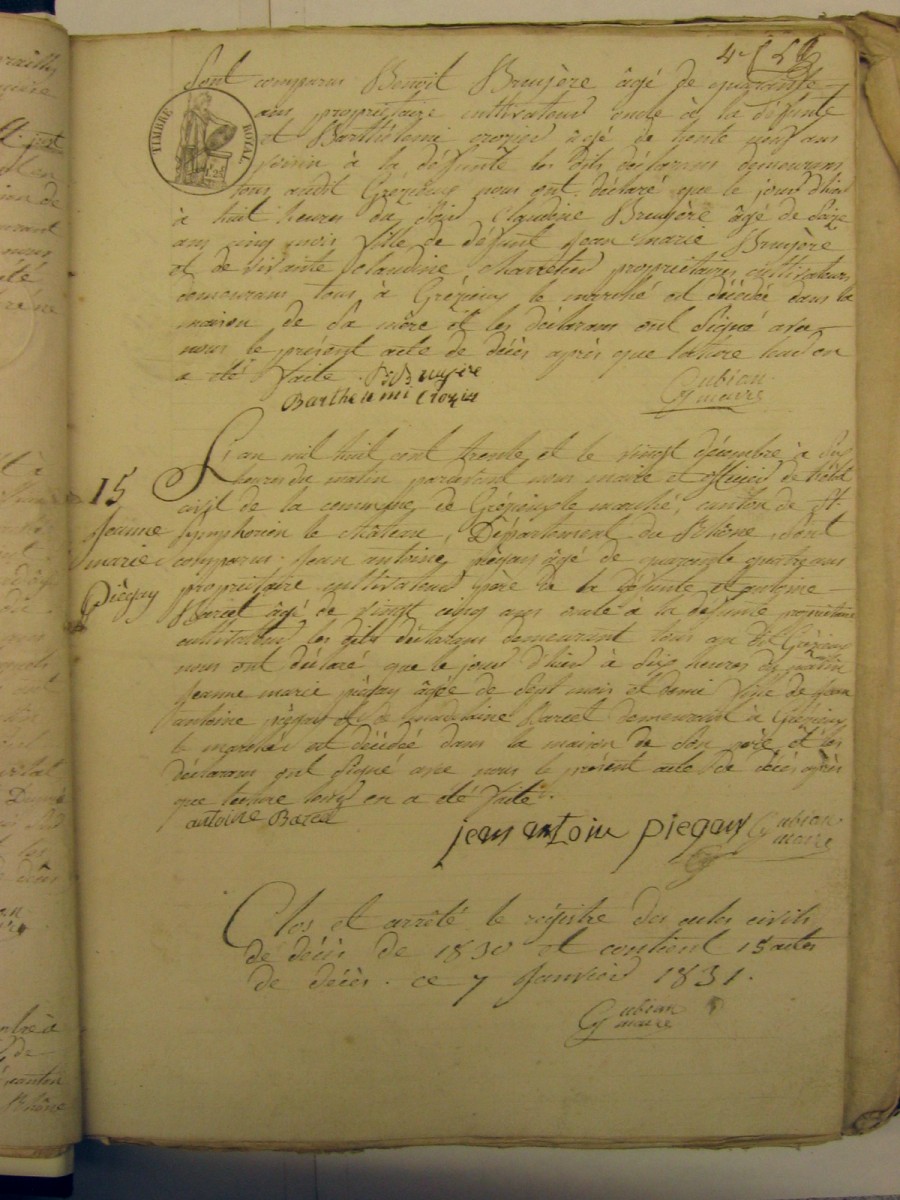 Sont comparus Benoit Bruyère âgé de quarante
TIMBRE ROYAL
ans propriétaire cultivateur oncle à la défunte
et Barthélemi crozier âgé de trente neuf ans
voisin à la défunte les dits déclarans demeurans
tous audit Grézieux nous ont déclaré que le jour d'hier
à huit heures du soir Claudine Bruyère âgé de seize
ans cinq mois fille de défunt jean marie Bruyère
et de vivante claudine charretier propriétaires cultivateurs
demeurans tous à Grézieux le marché est décédée dans la
maison de sa mère et les déclarans ont signé avec
nous le présent acte de décès après que lecture leur en
a été faite. B Bruyère
Barthelemi Crozier
Gubian
maire
15
jeanne
marie
Piégay
L'an mil huit cent trente et le vingt décembre à six
heures du matin pardevant nous maire et officier de l'état
civil de la commune de Grézieux le marché, canton de St
Symphorien le château, Département du Rhône, sont
comparus jean antoine piégay âgé de quarante quatre ans
propriétaire cultivateur père de la défunte et antoine
Barcet âgé de vingt cinq ans oncle à la défunte propriétaire
cultivateur les dits déclarans demeurant tous au dit Grézieux
nous ont déclaré que le jour d'hier à six heures du matin
jeanne marie piégay âgée de sept mois et demi fille de jean
antoine piégay et de madelaine Barcet demeurant à Grézieux
le marché est décédée dans la maison de son père et les
déclarans ont signé avec nous le présent acte de décès après
que lecture leur en a été faite.
antoine Barcet
jean antoine piegay
Gubian
maire
Clos et arrêté le régistre des actes civils
de décès de 1830 et contient 15 actes
de décès. ce 7 janvier 1831.
Gubian
maire